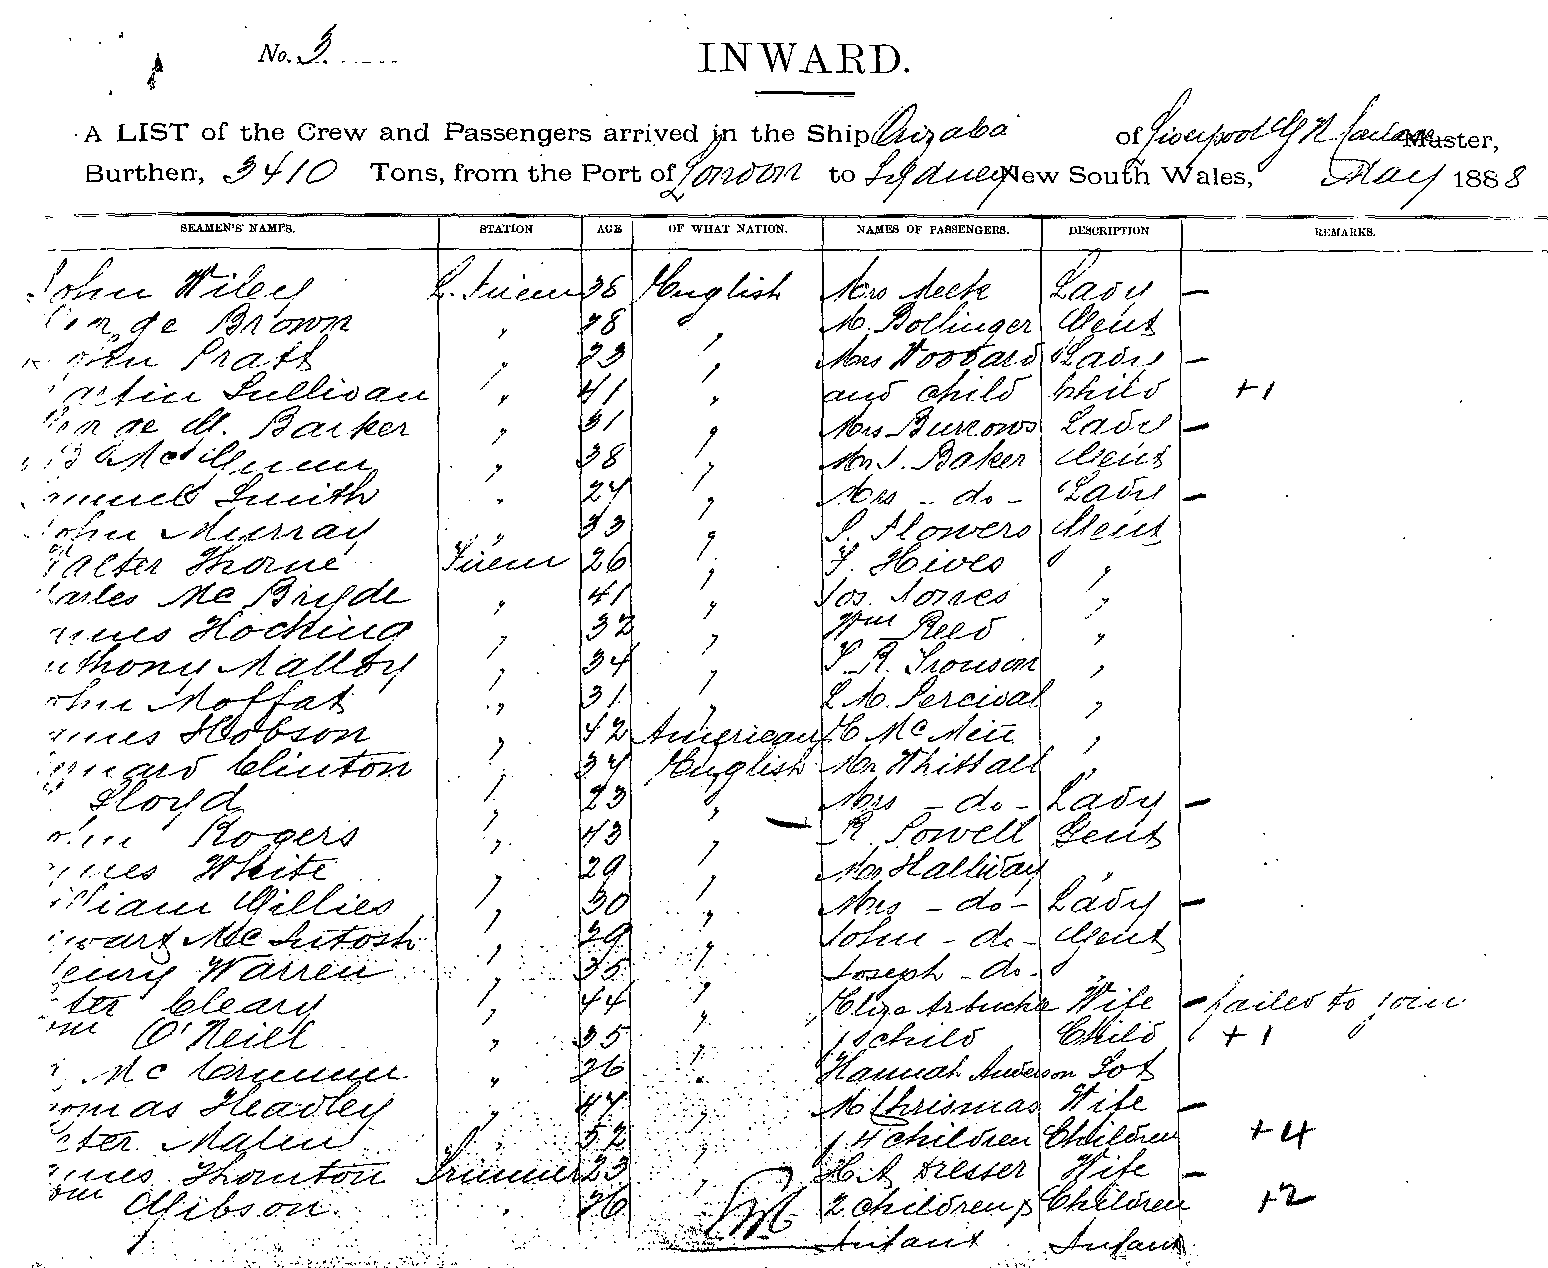 No. 3
INWARD.
A LIST of the Crew and Passengers arrived in the Ship Orizaba of Liverpool G N Master,
Burthen, 3410 Tons, from the Port of London to Sydney New South Wales, May 1888
SEAMEN'S NAMES. STATION AGE OF WHAT NATION. NAMES OF PASSENGERS. DESCRIPTION REMARKS.
John Wiley 38 English Mrs Meek Lady –
Brown " 28 " M. Bollinger Gent
John Pratt " 23 " Mrs Woodard Lady –
Martin Sullivan " 41 " and child Child +1
M. Barker " 31 " Mrs Burrows Lady –
" 38 " Mr J. Baker Gent
Samuel Smith " 27 " Mrs – do – Lady –
John Murray " 33 " S. Flowers Gent
Walter Thorne 26 " F. Hives "
Charles Mc Bryde " 41 " Jos. Jones "
James Hocking " 32 " Wm Reed "
Anthony Malloy " 34 " S. R. Tronson "
John Moffat " 31 " L M. Percival "
James Hobson " 42 American "
Clinton " 37 English Mr Whittall "
Lloyd " 23 " Mrs – do – Lady –
John Rogers " 43 " R. Powell Gent
James White " 29 " Mr Halliday "
William Gillies " 30 " Mrs – do – Lady –
Stewart McIntosh " 29 " John – do – Gent
Henry Warren " 35 " Joseph – do – "
Peter Cleary " 44 " Eliza Wife – failed to join
Wm O'Neill " 35 " 1 child Child +1
" 26 " Hannah Anderson
Thomas Headley " 47 " M Chrismas Wife –
Peter " 52 " 4 children Children +4
James Thornton Trimmer 23 " H A Dresser Wife –
Wm Gibson " 26 2 children & Children +2
Infant Infant